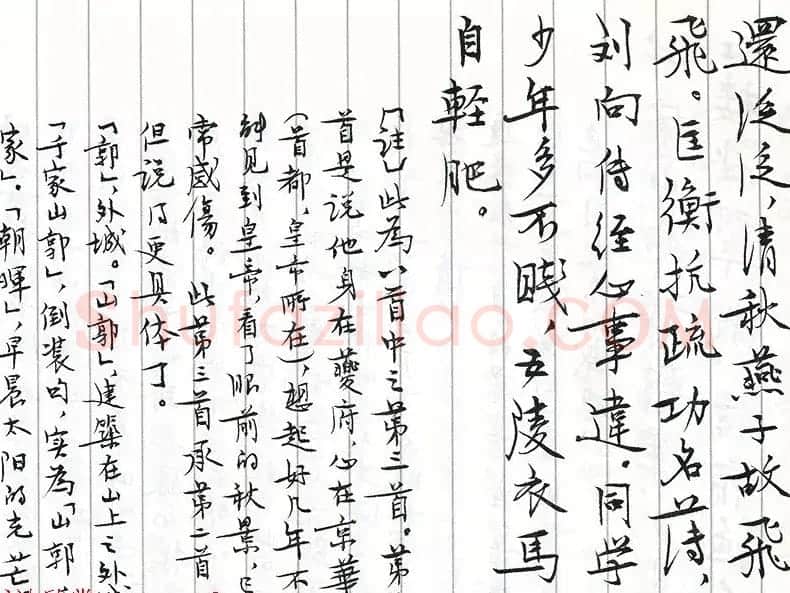 還泛泛，清秋燕子故飛
飛。匡衡抗疏功名薄，
刘向传经心事違。同学
少年多不賤，五陵衣马
自輕肥。
「註」此為八首中之第三首。第
首是说他身在夔府，心在京華
（首都，皇帝所在），想起好几年不
能见到皇帝，看了眼前的秋景，已
常感傷。此第三首承第二首
但说得更具体了。
「郭」，外城。「山郭」，建築在山上之外城
「千家山郭」，倒装句，实為「山郭
家」。「朝暉」，早晨太阳的光芒
Shufaziliao.COM